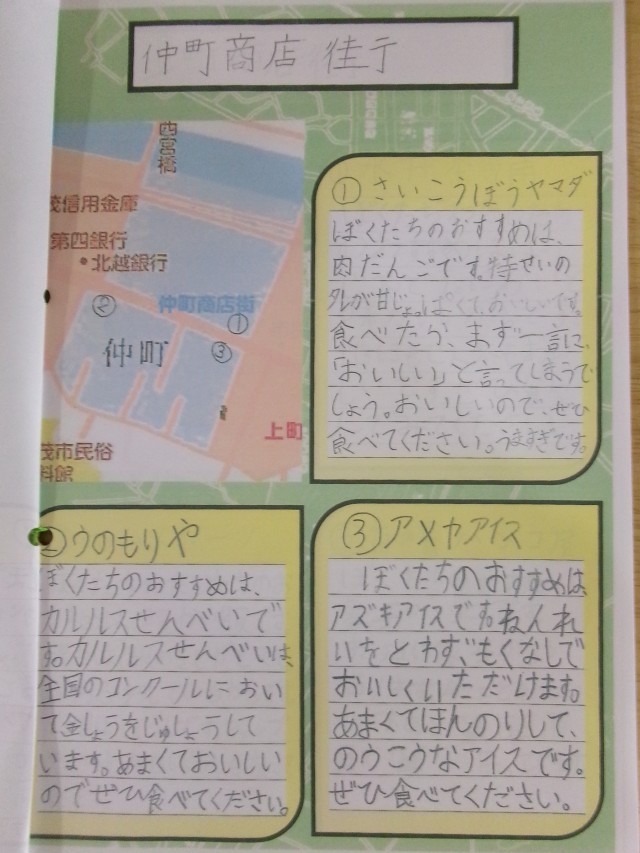 仲町商店街
西宮橋
茂信用金庫
第四銀行
・北越銀行
仲町商店街
②
①
仲町
③
上町
茂市民俗
料館
①さいこうぼうヤマダ
ぼくたちのおすすめは、
肉だんごです。特せいの
タレが甘じょっぱくて、おいしいです。
食べたら、まず一言に、
「おいしい」と言ってしまうで
しょう。おいしいので、ぜひ
食べてください。うますぎです。
②うのもりや
ぼくたちのおすすめは、
カルルスせんべいで
す。カルルスせんべいは、
全国のコンクールにおい
て金しょうをじゅしょうして
います。あまくておいしい
のでぜひ食べてください。
③アメヤアイス
ぼくたちのおすすめは、
アズキアイスです。ねんれ
いをとわず、もくなしで
おいしくいただけます。
あまくてほんのりして、
のうこうなアイスです。
ぜひ食べてください。